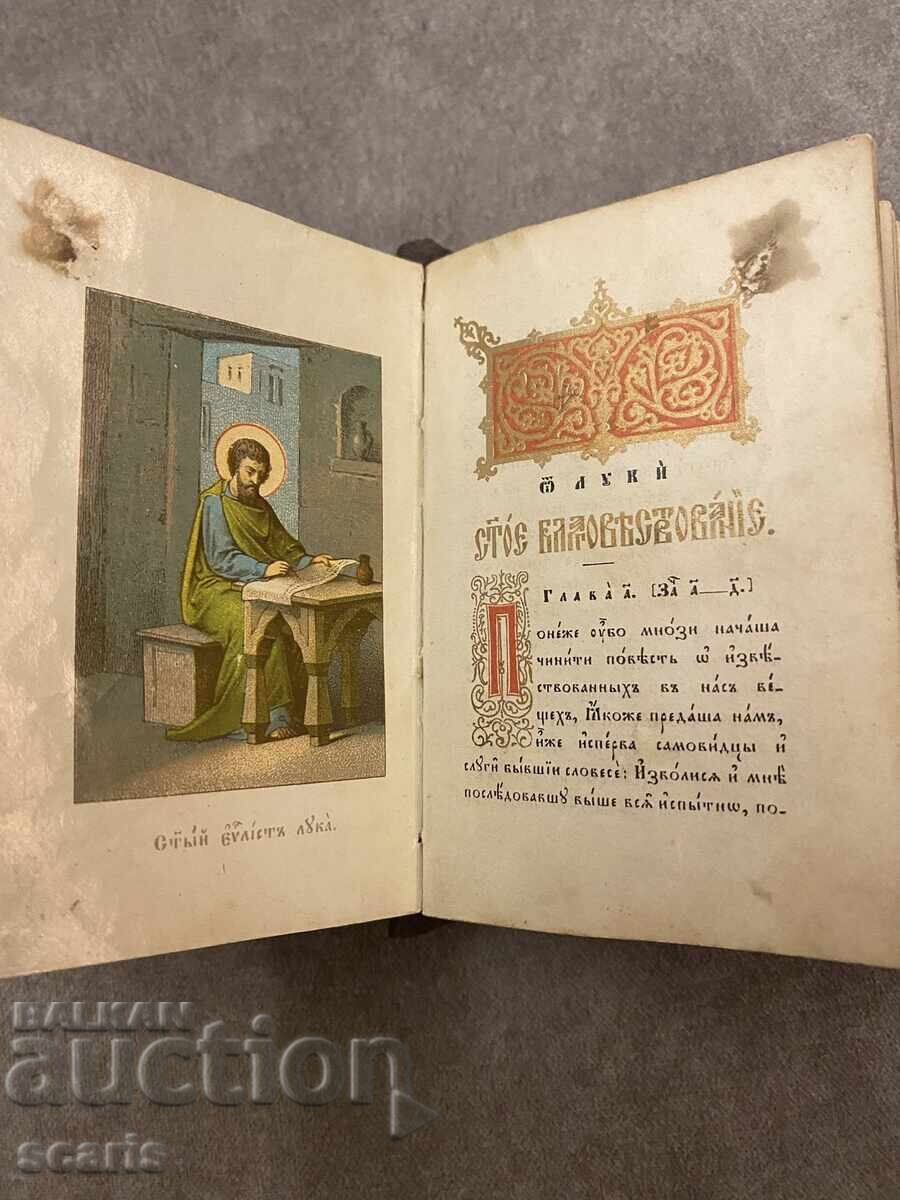 Ст҃ы́й є҆ѵⷢ҇лі́стъ лꙋка̀.
Ѿ ЛꙊКѝ
СТ҃О́Е БЛⷢ҇ОВѢСТВОВА́НЇЕ.
Глава̀ а҃. [За҃ а҃—д҃.]
Поне́же ᲂу҆́бѡ мно́зи нача́ша
чини́ти по́вѣсть ѡ҆ и҆звѣ́-
ствованныхъ въ на́съ ве́-
щехъ, ꙗ҆́коже преда́ша на́мъ,
и҆̀же и҆спе́рва самови́дцы и҆
слꙋги̑ бы́вшїи словесѐ: И҆зво́лисѧ и҆ мнѣ̀
послѣ́довавшꙋ вы́ше всѧ̑ и҆спы́тнѡ, по-
BALKAN
auction
scaris